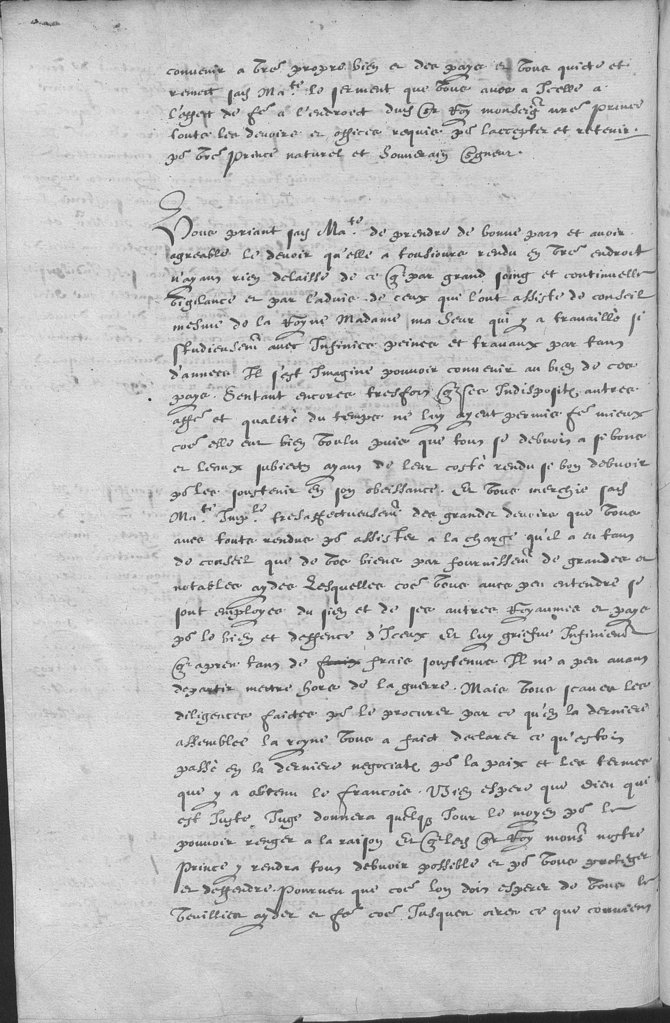 convenir a vre propre bien et des pays et vous quicte et
remect sad Ma.te le serment que vous aves a Icelle a
l'effect de fe a l'endroict dud Sr Roy monseigr vre prince
toutes les devoirs et offices requis po l'accepter et retenir
po vre prince naturel et Souverain Sgneur.
Vous priant sad Ma.te de prendre de bonne part et avoir
agreable le devoir qu'elle a tousiours rendu en vre endroit
n'ayant rien delaisse de ce q par grand soing et continuelle
vigilance et par l'advis de ceux qui l'ont assiste de conseil
mesme de la Royne Madame ma seur qui y a travaille si
studieusemt avec Infinies peines et travaux par tant
d'annees Il s'est Imagine pouvoir convenir au bien de ces
pays. Sentant encores tresfort q ses Indispositz autres
affes et qualite du temps ne luy ayent permis fe mieux
coe elle eut bien voulu puis que tant se debvoit a si bons
et leaux subiects ayant de leur coste rendu si bon debvoir
po les soustenir en son obeissance. Et vous mercie sad
Ma.te Imple tresaffectueusemt des grands devoirs que vous
aves tous rendus po assister a la charge qu'il a eu tant
de conseil que de vos biens par fournissemt de grandes et
notables aydes Lesquelles coe vous aves peu entendre se
sont employes du sien et de ses autres Royaumes et pays
po le bien et deffence d'Iceux Et luy griefve Infiniemt
q apres tant de frais soustenus Il ne a peu avant
departir mettre hors de la guerre. Mais vous scaves les
diligences faictes po le procurer par ce qu'en la derniere
assemblee la royne vous a faict declarer ce qu'estoit
passe en la derniere negociat po la paix et les termes
que y a obtenu le francois. Bien espere que dieu qui
est Juste Juge donnera quelq Jour le moyen po le
pouvoir renger a la raison Et q led Sr Roy monsr nostre
prince y rendra tout debvoir possible et po vous proteger
et deffendre pourveu que coe lon doit esperer de vous le
veuillies ayder et fe coe Jusques ores ce que convient